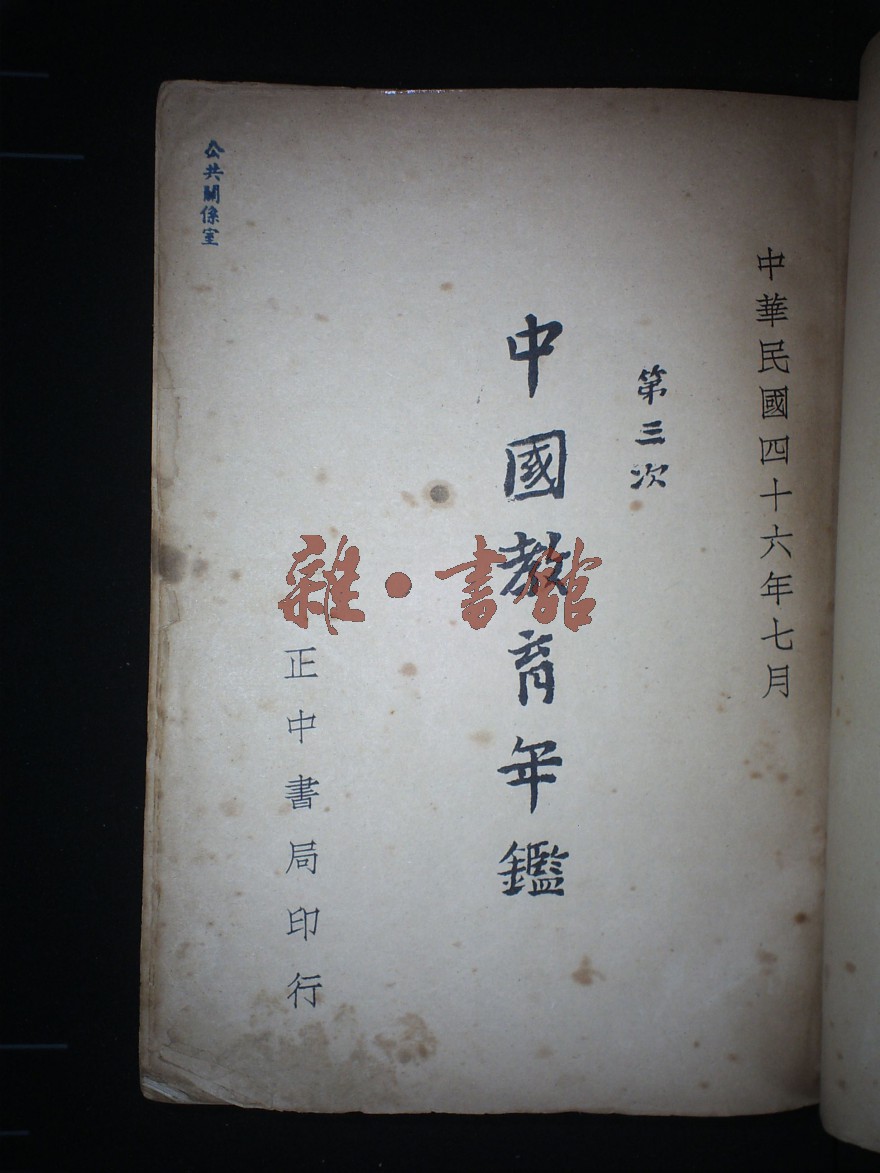 中華民國四十六年七月
第三次
中國教育年鑑
正中書局印行
公共關係室
雜·書館